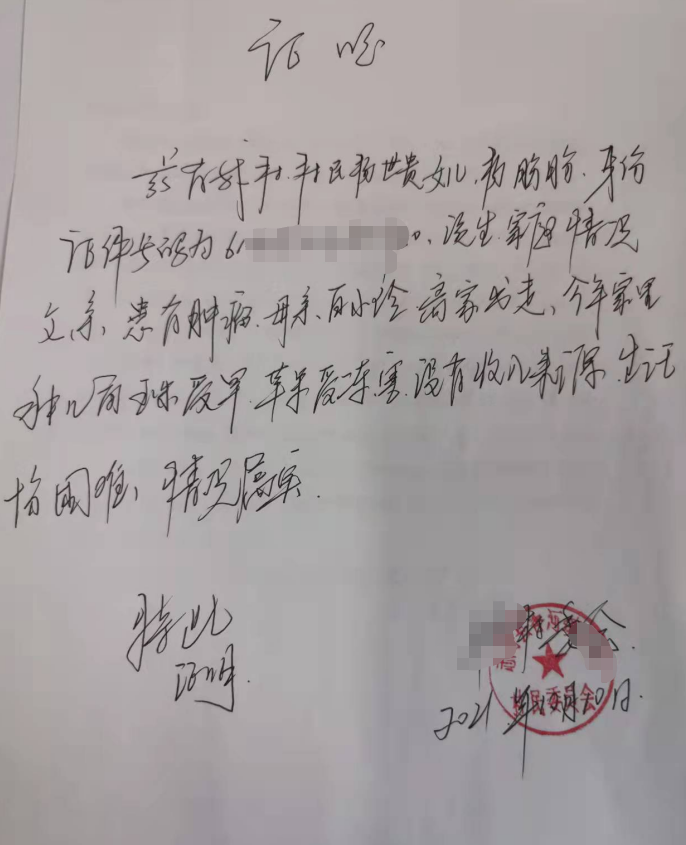 证明
兹有我村村民杨世贵女儿杨盼盼.身份
证件号码为6 0、该生家庭情况
父亲、患有肿瘤.母亲、自小 离家出走、今年家里
种几亩玉米受旱.苹果受冻害.没有收入来源.生活
十分困难、情况属实.
特此
证明
村委会.
村民委员会
2021年 月 0日.